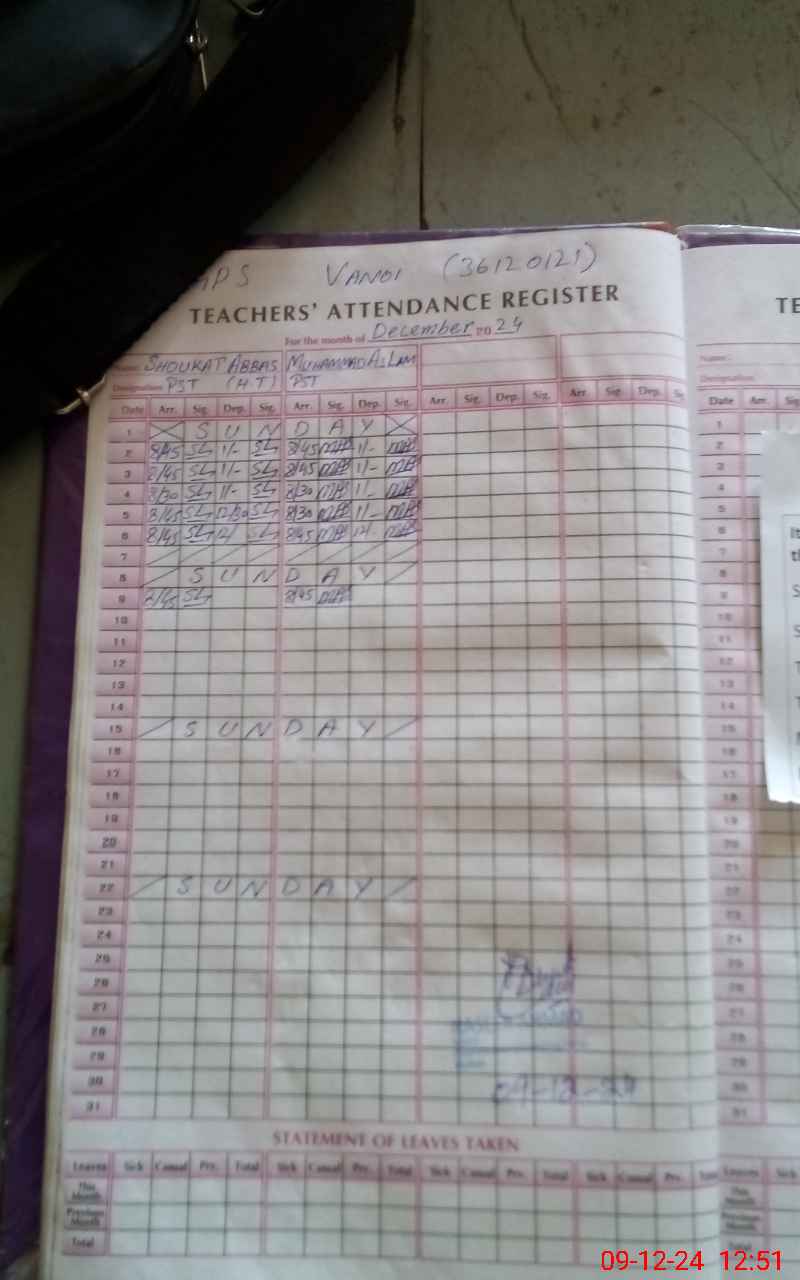 GPS VANOI (36120121)
TEACHERS' ATTENDANCE REGISTER
For the month of December 2024
Name: SHOUKAT ABBAS MUHAMMAD ASLAM
Designation: PST (H.T) PST
Date Arr. Sig. Dep. Sig. Arr. Sig. Dep. Sig. Arr. Sig. Dep. Sig. Arr. Sig. Dep. Sig.
1 S U N D A Y
2 8/45 1/- 8/45 1/-
3 8/45 1/- 8/45 1/-
4 8/30 1/- 8/30 1/-
5 8/45 12/30 8/30 1/-
6 8/45 12/ 8/45 12/
7
8 S U N D A Y
9 8/45 8/45
10
11
12
13
14
15 S U N D A Y
16
17
18
19
20
21
22 S U N D A Y
23
24
25
26
27
28
29
30
31
09-12-24
STATEMENT OF LEAVES TAKEN
Leaves Sick Casual Prv. Total Sick Casual Prv. Total Sick Casual Prv. Total Sick Casual Prv. Total
This Month
Previous Month
Total
TE
Name:
Designation:
Date Arr. Sig.
1
2
3
4
5
6
7
8
9
10
11
12
13
14
15
16
17
18
19
20
21
22
23
24
25
26
27
28
29
30
31
Leaves Sick
This Month
Previous Month
Total
It
th
09-12-24 12:51